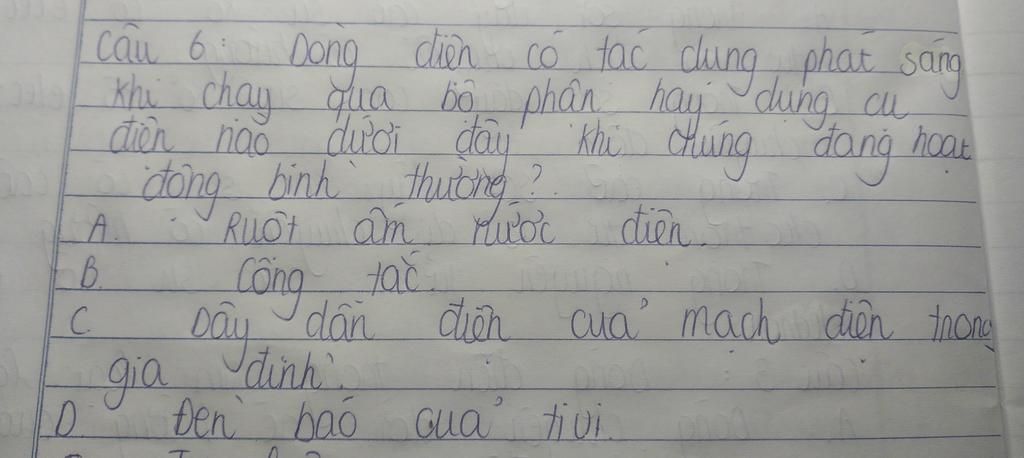 Câu 6: Dòng điện có tác dụng phát sáng
khi chạy qua bộ phận hay dụng cụ
điện nào dưới đây khi chúng đang hoạt
động bình thường?
A. Ruột ấm nước điện.
B. Công tắc.
C. Dây dẫn điện của mạch điện trong
gia đình.
D. Đèn báo của tivi.